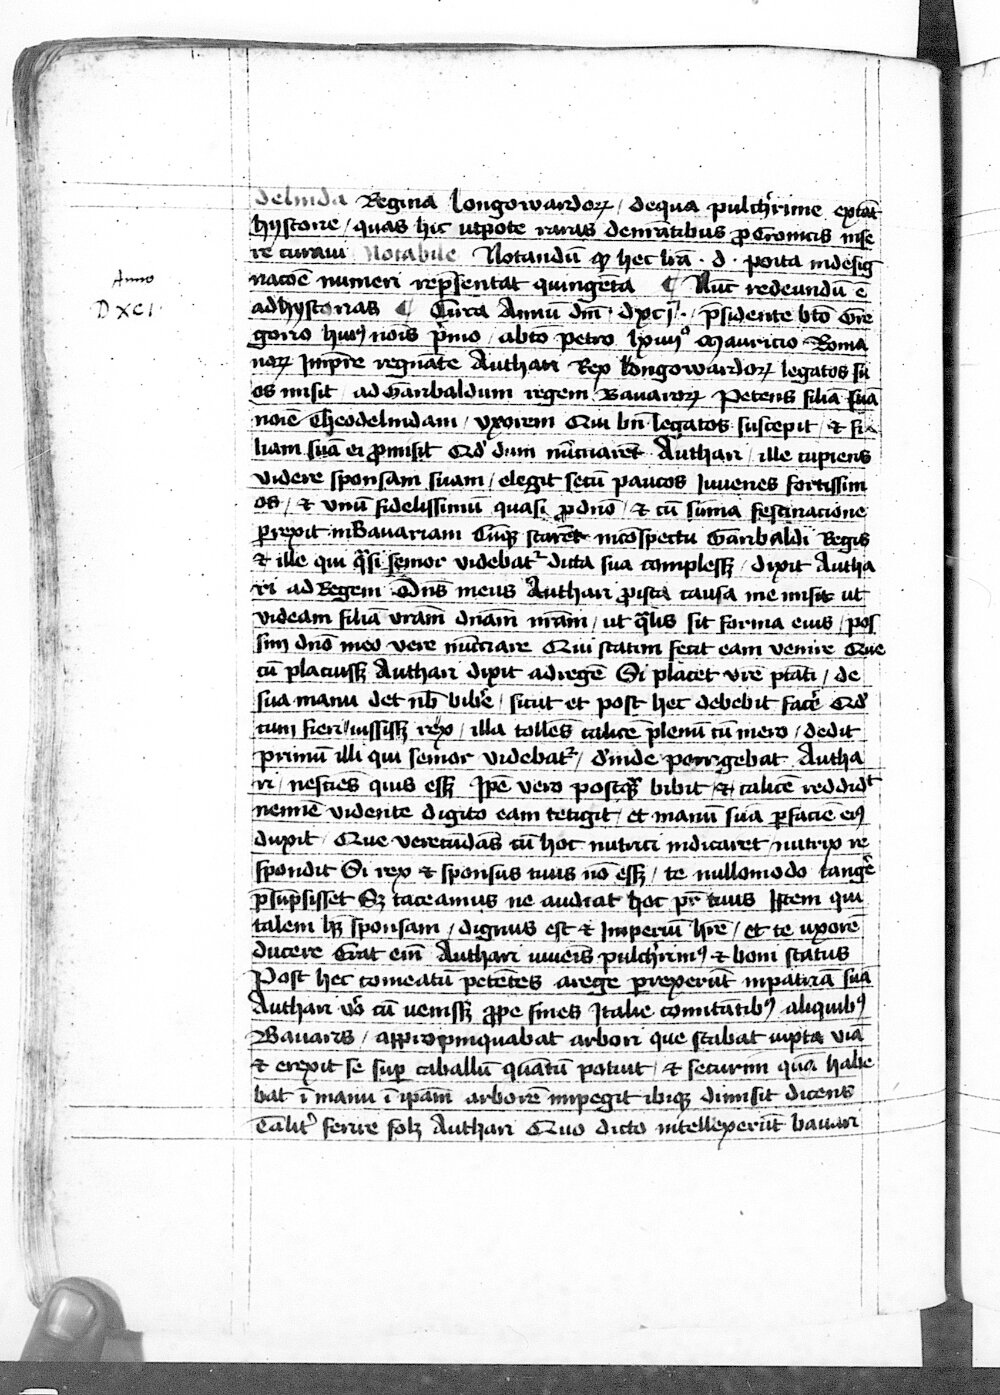 delinda Regina longowardoꝝ / dequa pulchͥrime extāt
hystorie / quas hic utpote raras demr̄atibus ꝓ Cronicis inse
re curaui Notabile Notandū ꝙ hec lr̄a · d · posita indesig
Anno
nacōe numeri rep̄sentat quingēta ¶ Nūc redeundū ē
DXCI·
adhystorias ¶ Circa Annū dn̄i · dxcj · p̄sidente btō Gre
gorio huiꝰ nois p̄mo / abtō petro lxiiijº Mauricio Roma
noꝝ Imꝑe regnāte Authari Rex longowardoꝝ legatos su
os misit / ad Garibaldum regem Bauaroꝝ Petens filiā suā
noīe Theodelindam / vxorem Qui bn̄ legatos suscepit / et fi
liam suā ei ꝓmisit Qd̓ dum nūciarēt Authari / ille cupiens
videre sponsam suam / elegit secū paucos Iuuenes fortissim
os / et unū fidelissimū quasi ꝓ dn̄o / et cū sūma festinacione
ꝑrexit inBauariam Cūqꝫ starēt incōspectu Garibaldi Regis
et ille qui q̄si senior videbatᷣ dicta sua complessꝫ / dixit Autha
ri ad Regem Dn̄s meus Authari ꝓista causa me misit ut
videam filiā vr̄am dn̄am nr̄am / ut q̄lis sit forma eius / pos
sim dn̄o meo vere nūciare Qui statim fecit eam venire Que
cū placuissꝫ Authari dixit adregē Si placet vr̄e ptāti / de
sua manu det nb̄ bibͤe / sicut et post hec debebit facͤe Qd̓
cum fieri iussissꝫ rex / illa tollēs calicē plenū cū mero / dedit
primū illi qui senior videbatᷣ / d̓inde porrigebat Autha
ri / nesciēs quis essꝫ Ip̄e vero postqᷓꝫ bibit / et calicē reddidͭ
nemīe vidente digito eam tetigit / et manū sua ꝑfaciē eiꝰ
duxit / Que verecūdās cū hoc nutrici indicaret / nutrix re
spondit Si rex et sponsus tuus nō essꝫ / te nullomodo tangͤe
p̄sūp̄sisset Sꝫ taceamus ne audiat hoc pr̄ tuus Item qui
talem hꝫ sponsam / dignus est et Imperiū hr̄e / et te uxorē
ducere Erat em̄ Authari iuuenis pulchͥrimꝰ et boni status
Post hec comeatū petētes arege ꝑrexerūt inpatriā suā
Authari v̓o cū uenissꝫ ꝓpe fines Italie comitātibꝰ aliquibꝰ
Bauaris / appropinquabat arbori que stabat iuxta viā
et erexit se suꝑ caballū quātū potuit / et securim quā habe
bat ī manu ī ip̄am arborē impegit ibiqꝫ dimisit dicens
Talitͥ ferire solꝫ Authari Quo dicto intellexerūt bauari